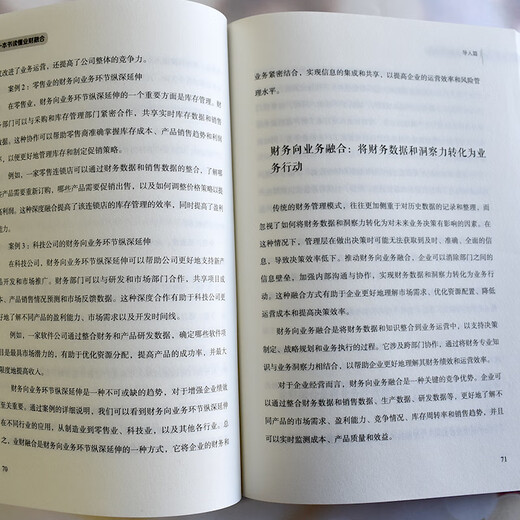 一本书读懂业财融合
改进了业务运营，还提高了公司整体的竞争力。
案例 2：零售业的财务向业务环节纵深延伸
在零售业，财务向业务环节纵深延伸的一个重要方面是库存管理。财
务部门可以与采购和库存管理部门紧密合作，共享实时库存数据和销售数
据。这种协作可以帮助零售商准确掌握库存成本、产品销售趋势和利润
，以便更好地管理库存和制定促销策略。
例如，一家零售连锁店可以通过财务数据和销售数据的整合，了解哪
些产品需要重新订购，哪些产品需要促销出售，以及如何调整价格策略以提
高利润。这种深度融合提高了该连锁店的库存管理的效率，同时提高了盈利
案例 3：科技公司的财务向业务环节纵深延伸
在科技公司，财务向业务环节纵深延伸可以帮助公司更好地支持新产
品开发和市场推广。财务部门可以与研发和市场部门合作，共享项目成
本、产品销售情况预测和市场反馈数据。这种深度合作有助于科技公司更
好地了解不同产品的盈利能力、市场需求以及开发时间线。
例如，一家软件公司通过整合财务和产品研发数据，确定哪些软件项
目是最具市场潜力的，有助于优化资源分配，提高产品的成功率，并最大
限度地提高收入。
财务向业务环节纵深延伸是一种不可或缺的趋势，对于增强企业绩效
至关重要。通过案例的详细说明，我们可以看到财务向业务环节纵深延伸
在不同行业的应用，从制造业到零售业、科技业，以及其他各行业。总
之，业财融合是财务向业务环节纵深延伸的一种方式，它将企业的财务和
70
导入篇
业务紧密结合，实现信息的集成和共享，以提高企业的运营效率和风险管
理水平。
财务向业务融合：将财务数据和洞察力转化为业
务行动
传统的财务管理模式，往往更加侧重于对历史数据的记录和整理，而
忽视了如何将财务数据和洞察力转化为对未来业务决策有影响的因素。在
这种情况下，管理层在做出决策时可能无法获取到及时、准确、全面的信
息，导致决策效率低下。推动财务向业务融合，企业可以消除部门之间的
信息壁垒，加强内部沟通与协作，实现财务数据和洞察力转化为业务行
动。这种融合方式有助于企业更好地理解市场需求、优化资源配置、降低
运营成本和提高决策效率。
财务向业务融合是将财务数据和知识整合到业务运营中，以支持决策
制定、战略规划和业务执行的过程。它涉及跨部门协作，通过将财务专业知
识与业务洞察力相结合，以帮助企业更好地理解其财务绩效和运营效率。
对于企业经营而言，财务向业务融合是一种关键的竞争优势。企业可
以通过整合财务数据和销售数据、生产数据、研发数据等，更好地了解不
同产品的市场需求、盈利能力、竞争情况、库存周转率和销售趋势，并且
可以实时监测成本、产品质量和效益。
71